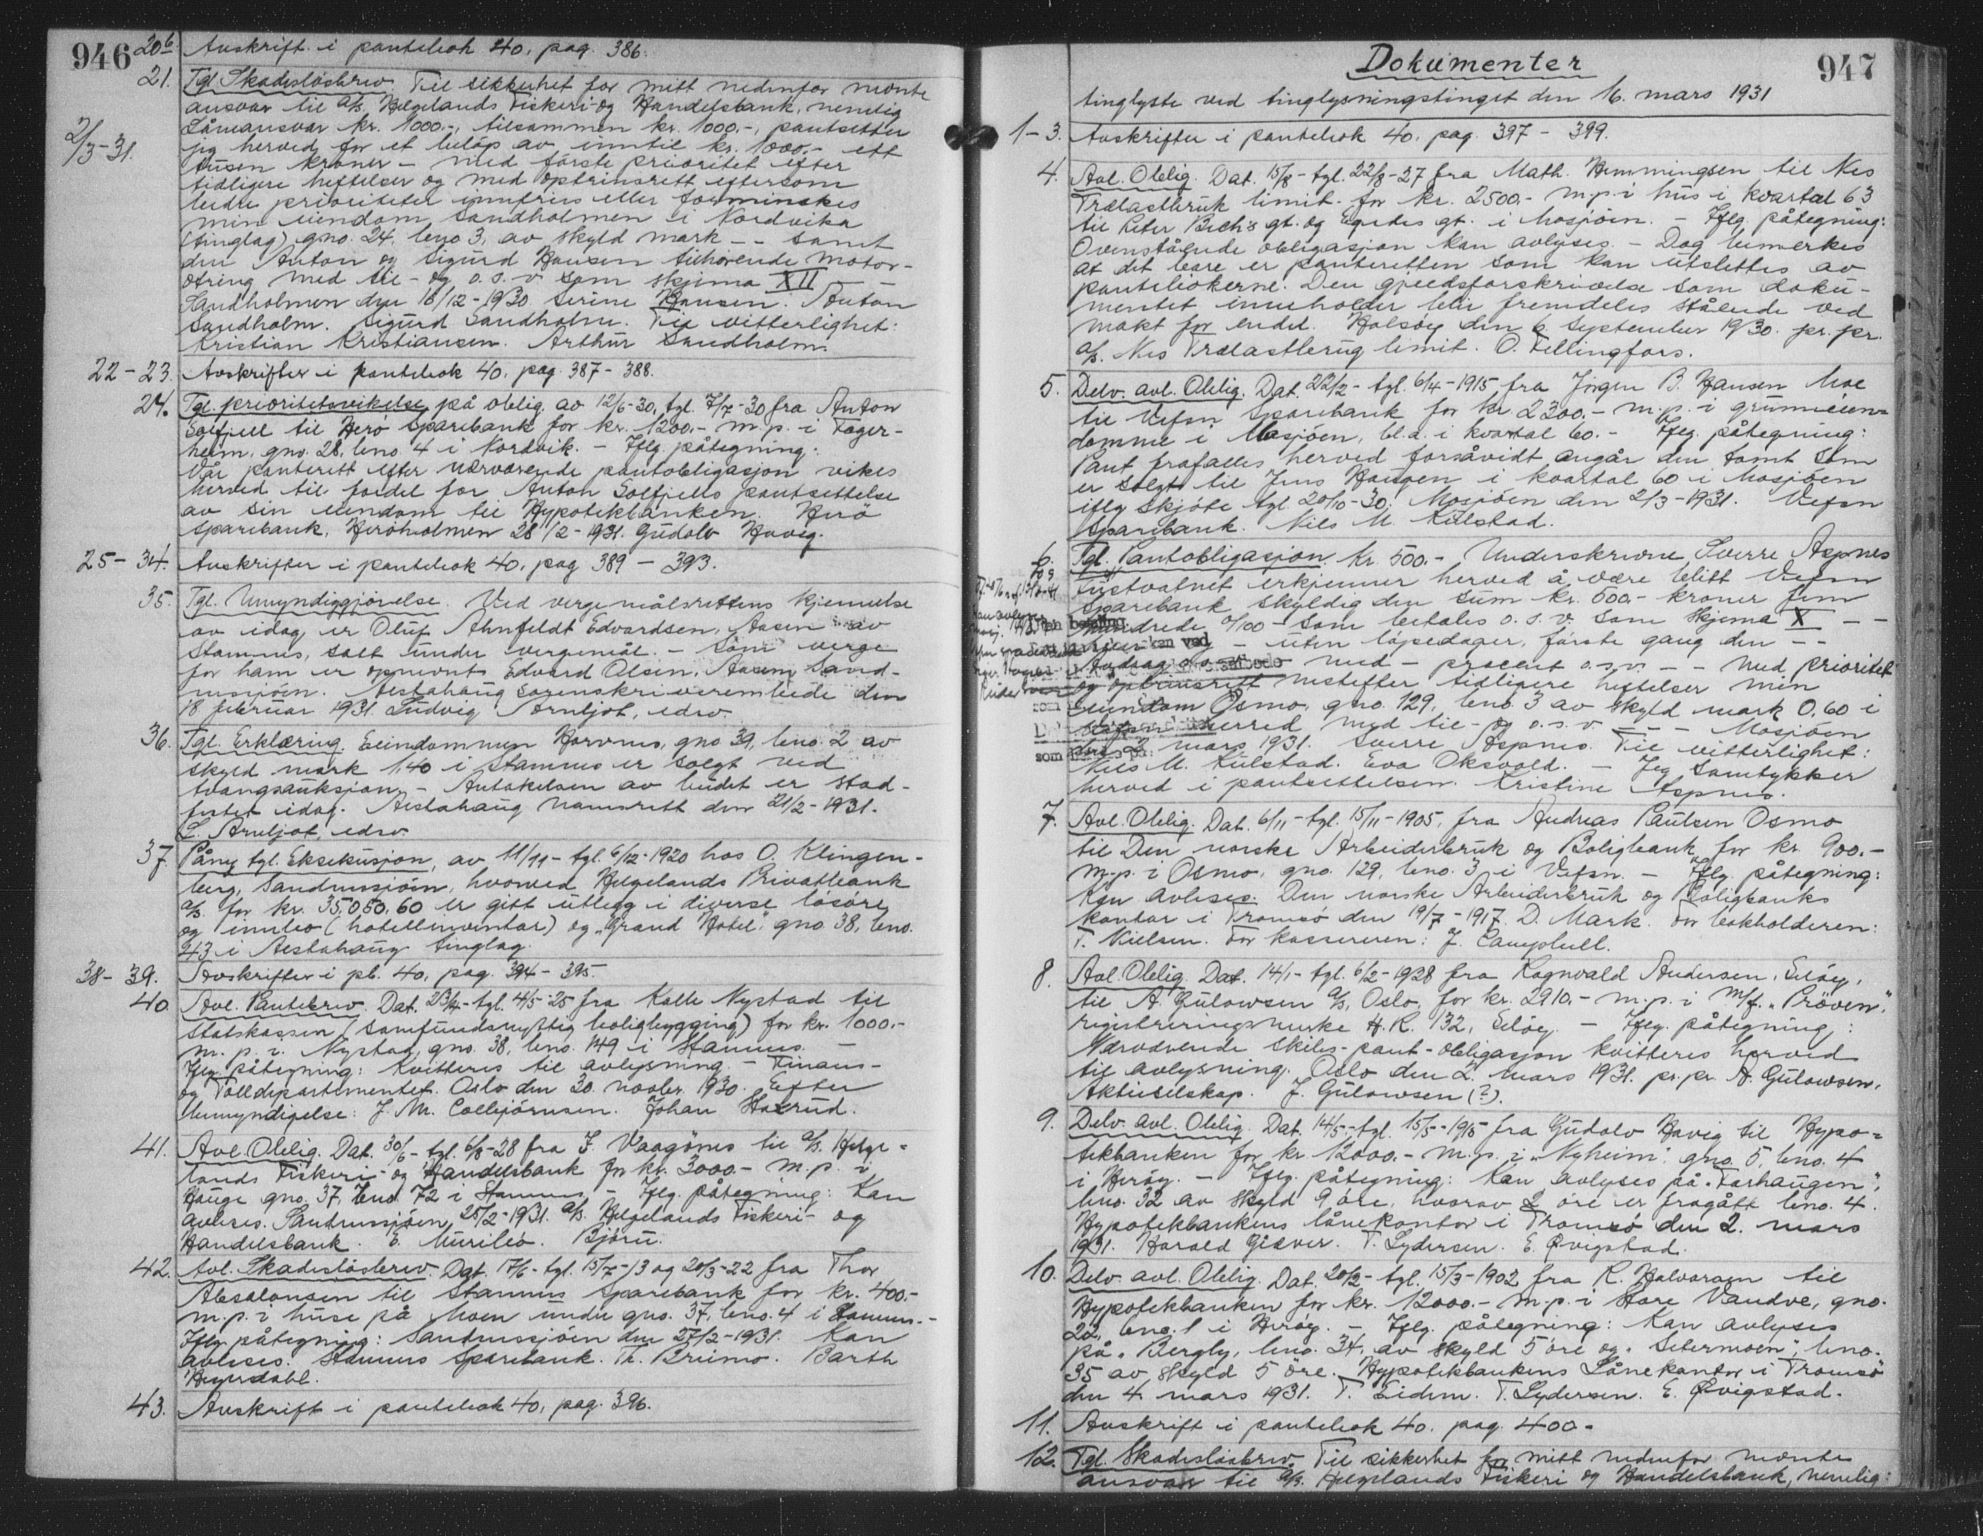 946
20b. Avskrift i pantebok 40, pag. 386.
21. Tgl. Skadesløsbrev. Til sikkerhet for mitt nedenfor nevnte
ansvar til a/s. Helgelands Fiskeri- og Handelsbank, nemlig
2/3-31.
Låneansvar kr. 1000.-, tilsammen kr. 1000.-, pantsetter
jeg herved for et beløp av inntil kr. 1000.- ett
tusen kroner - med første prioritet efter
tidligere heftelser og med optrinsrett eftersom
bedre prioriteter innfries eller forminskes
min eiendom Sandholmen i Nordvika
(tinglag) gno. 24, bno 3, av skyld mark - - samt
den Anton og Sigurd Hansen tilhørende motor-
otring med til- og o.s.v. som skjema XII - -
Sandholmen den 16/12-1930. Serine Hansen. Anton
Sandholm. Sigurd Sandholm. Til vitterlighet:
Kristian Kristiansen. Arthur Sandholm.
22-23. Avskrifter i pantebok 40, pag. 387-388.
24. Tgl. prioritetsvikelse på oblig. av 12/6-30, tgl. 7/7-30 fra Anton
Solfjell til Herø Sparebank for kr. 1200.- m.p. i Fager-
heim, gno. 28, bno. 4 i Nordvik. - Iflg. påtegning:
Vår panterett efter nærværende pantobligasjon vikes
herved til fordel for Anton Solfjells pantsettelse
av sin eiendom til Hypotekbanken. Herö
Sparebank, Herøholmen 28/2-1931. Gudolv Havig.
25-34. Avskrifter i pantebok 40, pag 389 - 393.
35. Tgl. Umyndiggjørelse. Ved vergemålsrettens kjennelse
av idag er Oluf Ahnfeldt Edvardsen, Aasen av
Stamnes, satt under vergemål. - Som verge
for ham er opnevnt Edvard Olsen, Aasen, Sand-
nessjøen. Alstahaug sorenskriverembede den
18 februar 1931. Ludvig Arnljot, edsv.
36. Tgl. Erklæring. Eiendommen Horvnes, gno 39, bno. 2 av
skyld mark 1,40 i Stamnes er solgt ved
tvangsauksjon. - Antakelsen av budet er stad-
festet idag. Alstahaug namsrett den 21/2-1931.
L. Arnljot, edsv.
37. Påny tgl. Eksekusjon, av 11/11 - tgl. 6/12-1920 hos O. Klingen-
berg, Sandnessjøen, hvorved Helgelands Privatbank
a/s. for kr. 35,050,60 er gitt utlegg i diverse løsøre
og innbo (hotellinventar) og "Grand Hotel", gno. 38, bno.
43 i Alstahaug tinglag.
38-39. Avskrifter i pb. 40, pag. 394-395.
40. Avl. Pantebrev. Dat. 23/4 - tgl. 4/5-25 fra Kalle Nystad til
Statskassen (samfundsnyttig boligbygging) for kr. 1000.-
m.p. i Nystad, gno. 38, bno. 149 i Stamnes. -
Iflg. påtegning: Kvitteres til avlysning. - Finans-
og Tolldepartementet. Oslo den 30. novbr. 1930. Efter
bemyndigelse: J. M. Collbjørnsen. Johan Haxrud.
41. Avl. Oblig. Dat. 30/6 - tgl. 6/8-28 fra J. Vaagønes til a/s. Helge-
lands Fiskeri- og Handelsbank for kr. 3000.- m.p. i
Hauge gno. 37, bno. 72 i Stamnes. - Iflg. påtegning: Kan
avlyses. Sandnessjøen, 28/2-1931. a/s. Helgelands Fiskeri- og
Handelsbank. Bjøru.
42. Avl. Skadesløsbrev. Dat 17/6 - tgl. 15/7-13 og 20/3-22 fra Thor
Absalonsen til Stamnes Sparebank for kr. 400.-
m.p. i huse på Moen under gno. 37, bno. 4 i Stamnes. -
Iflg. påtegning: Sandnessjøen den 27/2-1931. Kan
avlyses. Stamnes Sparebank. Th. Brunvo. Barth
Heyerdahl.
43. Avskrift i pantebok 40, pag. 396.
947
Dokumenter
tinglyste ved tinglysningstinget den 16. mars 1931
1-3. Avskrifter i pantebok 40. pag. 397 - 399.
4. Avl. Oblig. Dat. 15/8 - tgl. 22/8-27 fra Math. Hemmingsen til Nes
Trælastbruk limit. for kr. 2500.- m.p. i hus i kvartal 63
til Peter Bech's gt. og Egedes gt. i Mosjøen. - Iflg. påtegning:
Ovenstående obligasjon kan avlyses. - Dog bemerkes
at det bare er panteretten som kan utslettes av
pantebøkerne. Den gjeldsforskrivelse som doku-
mentet inneholder blir fremdeles stående ved
makt for endel. Holsøy den 6 september 1930. pr. pr.
a/s. Nes Trælastbrug limit. O. Fellingfors.
5. Delv. avl. Oblig. Dat. 22/2 - tgl. 6/4-1915 fra Jørgen B. Hansen Moe
til Vefsn Sparebank for kr 2300.- m.p. i grunneien-
domme i Mosjøen, bl.a. i kvartal 60. - Iflg. påtegning:
Pant frafalles herved forsåvidt angår den tomt som
er solgt til Jens Haugen i kvartal 60 i Mosjøen
iflg skjøte tgl. 20/10-30. Mosjøen den 2/3-1931. Vefsn
Sparebank. Nils M. Kulstad.
6. Tgl. Pantobligasjon. kr 500.- Underskrevne Sverre Aspnes
Fustvatnet erkjenner herved å være blitt Vefsn
Sparebank skyldig den sum kr. 500.- kroner fem
hundrede 0/100 - som betales o.s.v. som skjema X - -
uten løpedager, første gang den - -
Avdrag - med - procent o.s.v. - - med prioritet
og optrinsrett nestefter tidligere heftelser min
eiendom Osmo, gno. 129, bno. 3 av skyld mark 0,60 i
Vefsn herred med til- og o.s.v. - - - Mosjøen
den 2 mars 1931. Sverre Aspnes. Til vitterlighet:
Nils M. Kulstad. Eva Oksvold. - Jeg samtykker
herved i pantsettelsen. Kristine Aspnes.
7. Avl. Oblig. Dat. 6/11 - tgl. 15/11-1905, fra Andreas Paulsen Osmo
til Den norske Arbeiderbruk og Boligbank for kr. 900.-
m.p. i Osmo, gno. 129, bno. 3 i Vefsn. - Iflg. påtegning:
Kan avlyses. Den norske Arbeiderbruk og Boligbanks
kontor i Tromsø den 19/7-1917. D. Mark. For bokholderen:
T. Nielsen. For kassereren: J. Campbell.
8. Avl. Oblig. Dat. 14/1 - tgl. 6/2-1928 fra Ragnvald Andersen, Seløy,
til A. Gulowsen a/s, Oslo, for kr. 2910.- m.p. i m/f. "Prøven",
registreringsmerke H.R. 132, Seløy. - Iflg. påtegning:
Nærværende skibs-pant-obligasjon kvitteres herved
til avlysning. Oslo den 2. mars 1931. pr. pr. A. Gulowsen,
Aktieselskap. J. Gulowsen (?).
9. Delv. avl. Oblig. Dat. 14/5 - tgl. 15/5-1915 fra Gudolv Havig til Hypo-
tekbanken for kr. 12000.- m.p. i "Nyheim", gno. 5, bno. 4
i Herøy. - Iflg. påtegning: Kan avlyses på "Farhaugen",
bno. 32 av skyld 9 øre, hvorav 2 øre er fragått bno. 4.
Hypotekbankens lånekontor i Tromsø den 2. mars
1931. Harald Giæver. T. Lydersen. E. Øvigstad.
10. Delv. avl. Oblig. Dat. 20/2 - tgl. 15/3-1902 fra R. Halvorsen til
Hypotekbanken for kr. 12000.- m.p. i Store Vandve, gno.
22, bno. 1 i Herøy. - Iflg. påtegning: Kan avlyses
på "Bergly, bno. 34, av skyld 5 øre og "Setermoen", bno.
35 av skyld 5 øre. Hypotekbankens Lånekontor i Tromsø
den 4. mars 1931. T. Eidem. T. Lydersen. E. Øvigstad.
11. Avskrift i pantebok 40. pag. 400.
12. Tgl. Skadesløsbrev. Til sikkerhet for mitt nedenfor nevnte
ansvar til a/s. Helgelands Fiskeri og Handelsbank, nemlig: